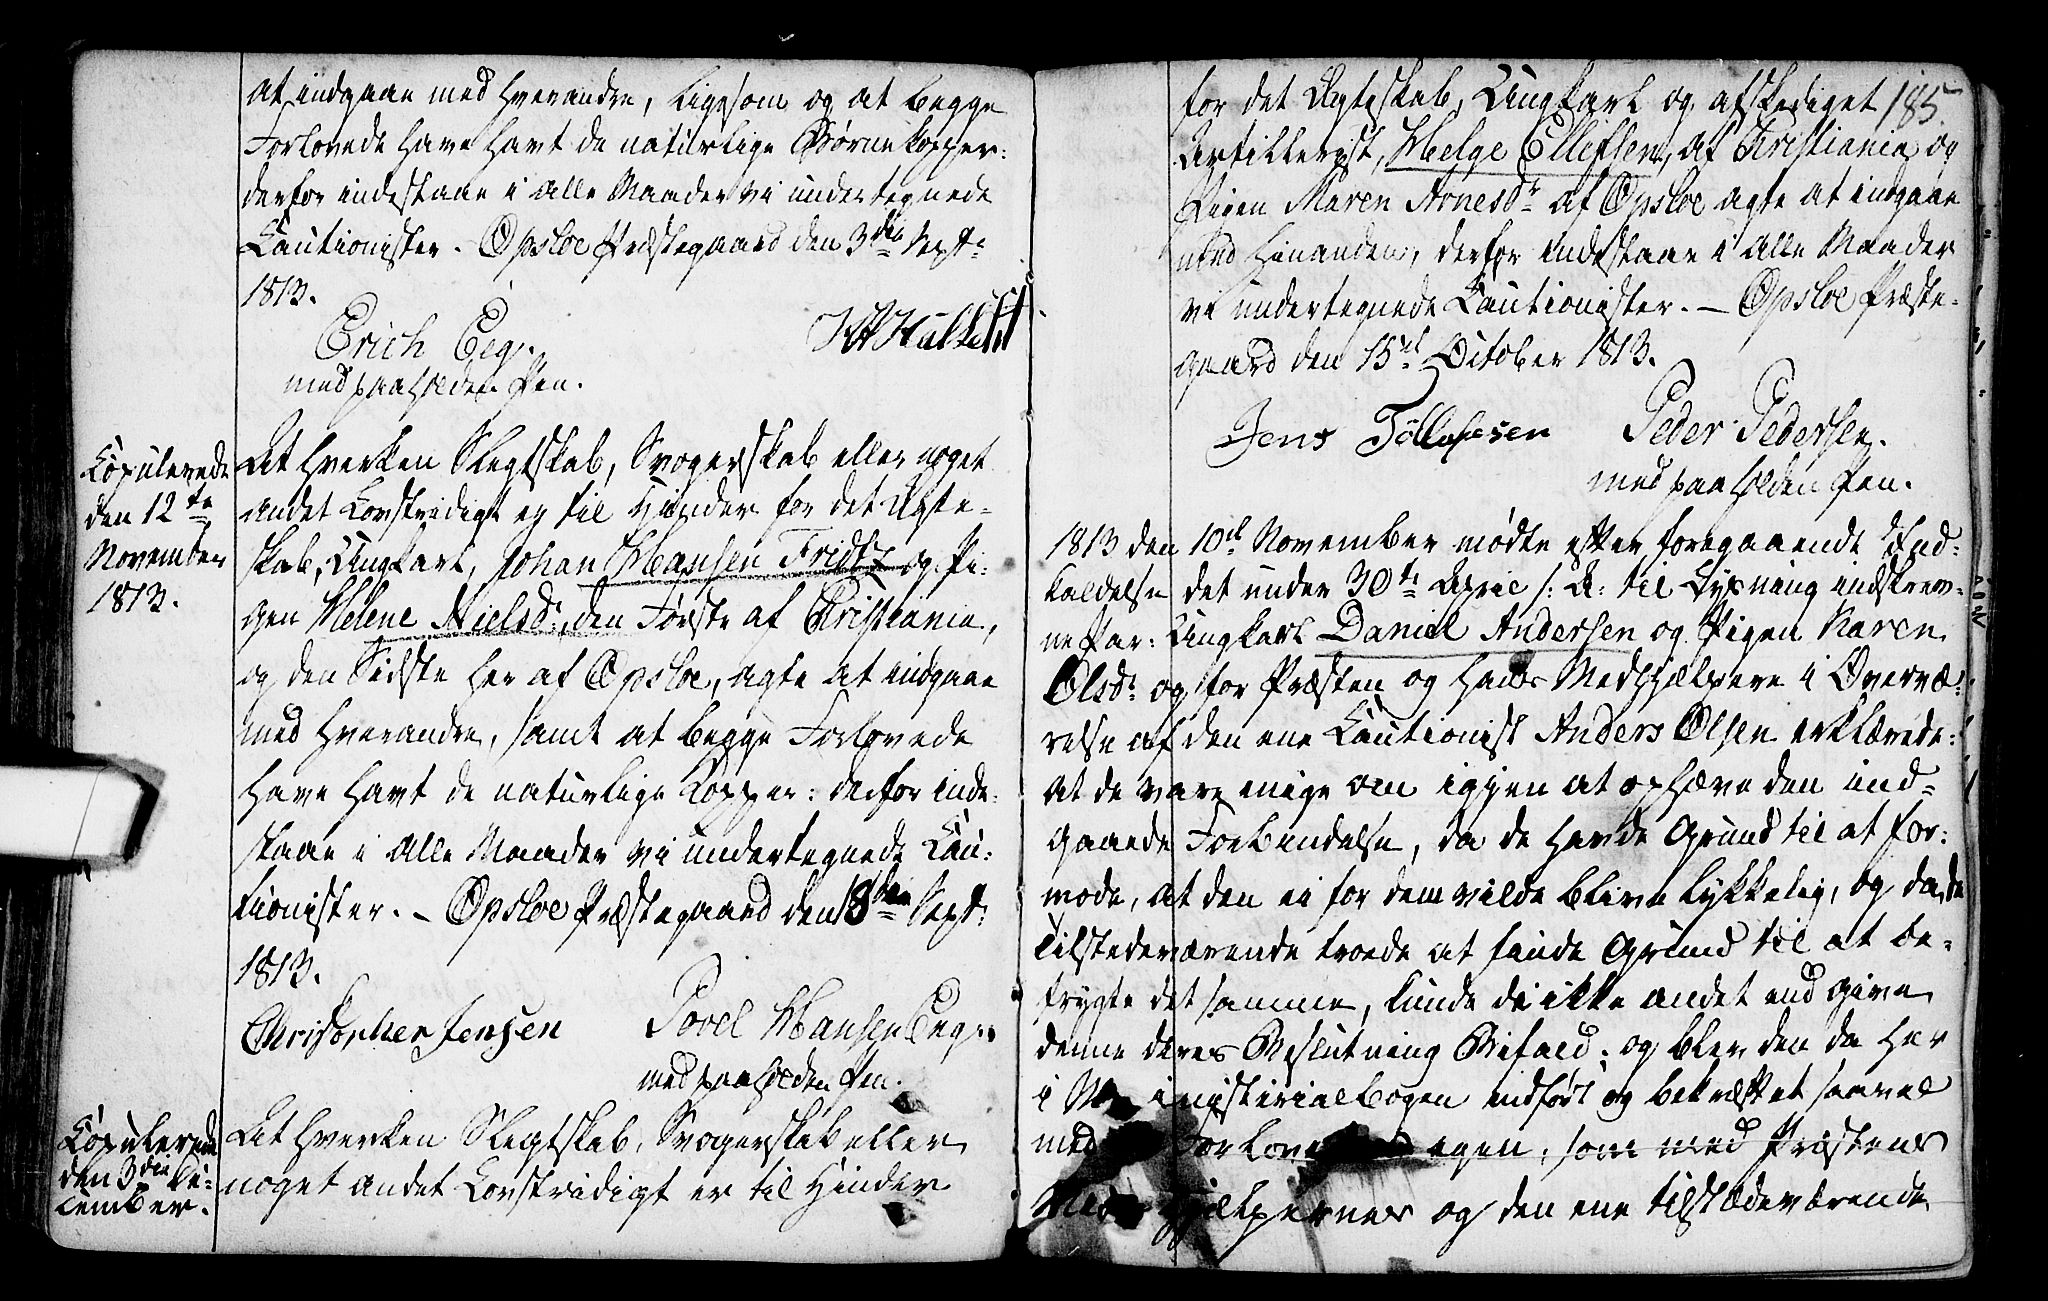 at indgaae med hverandre, ligesom og at begge
Forlovede have havt de naturlige Børnekopper:
derfor indestaae i alle Maader vi undertegnede
Cautionister. Opsloe Præstegaard den 3die Sept:
1813.
Erich Eeg.
med paaholden Pen.
Copulerede
den 12te
November
1813.
At hverken Slegtskab, Svogerskab eller noget
andet Lovstridigt er til Hinder for det Ægte-
skab, Ungkarl, Johan Hansen Fridtz og Pi-
gen Helene Nielsd: den Første af Christiania,
og den Sidste her af Opsloe, agte at indgaae
med hverandre, samt at begge Forlovede
have havt de naturlige Kopper: derfor inde-
staae i alle Maader vi undertegnede Cau-
tionister. – Opsloe Præstegaard den 18de Sept:
1813.
Christopher Jensen Povel Hansen Eeg
med paaholden Pen.
Copulerede
den 3die De-
cember.
At hverken Slegtskab, Svogerskab eller
noget andet Lovstridigt er til Hinder
185.
for det Ægteskab, Ungkarl og afskediget
Artillerist, Helge Ellefsen, af Christiania og
Pigen Maren Arnesdr af Opsloe agte at indgaae
med hinanden, derfor indestaae i alle Maader
vi undertegnede Cautionister. – Opsloe Præste-
gaard den 15de October 1813.
Jens Tollefsen Peder Pedersen.
med paaholden Pen.
1813 den 10de November mødte efter foregaaende Ind-
kaldelse det under 30te April s: A: til Lysning indskrev-
ne Par: Ungkarl Daniel Andersen og Pigen Karen
Olsdr og for Præsten og hans Medhjælpere i Overvæ-
relse af den ene Cautionist Anders Olsen erklærede:
at de vare enige om igjen at ophæve den ind-
gaaede Forbindelse, da de havde Grund til at for-
mode, at den ei for dem vilde blive lykkelig, og da de
Tilstedeværende troede at finde Grund til at be-
frygte det samme, kunde de ikke andet end give
denne deres Beslutning Bifald; og blev den da her
i Ministerialbogen indført og bekræftet saavel
med egen, som med Præstens
Medhjælpernes og den ene tilstædeværende